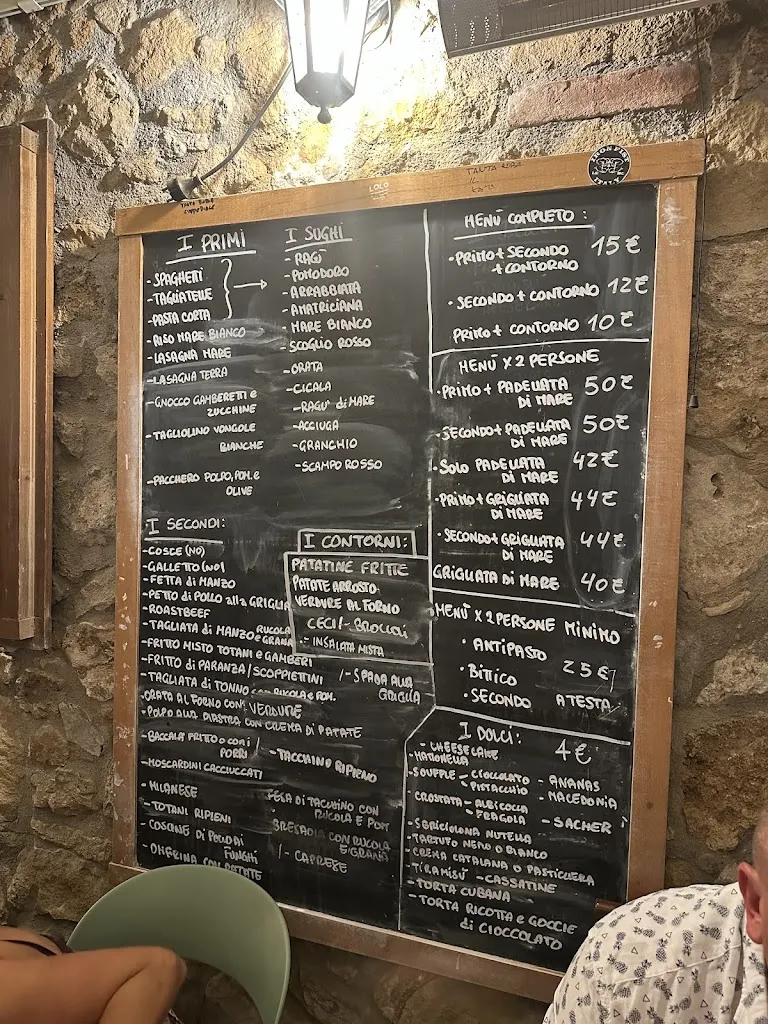 I PRIMI
- SPAGHETTI
- TAGLIATELLE
- PASTA CORTA
- RISO MARE BIANCO
- LASAGNA MARE
- LASAGNA TERRA
- GNOCCO GAMBERETTI e
ZUCCHINE
- TAGLIOLINO VONGOLE
BIANCHE
- PACCHERO POLPO, POM. e
OLIVE
I SUGHI
- RAGÙ
- POMODORO
- ARRABBIATA
- AMATRICIANA
- MARE BIANCO
- SCOGLIO ROSSO
- ORATA
- CICALA
- RAGU' di MARE
- ACCIUGA
- GRANCHIO
- SCAMPO ROSSO
I SECONDI:
- COSCE (NO)
- GALLETTO (NO)
- FETTA di MANZO
- PETTO di POLLO alla GRIGLIA
- ROASTBEEF
- TAGLIATA di MANZO RUCOLA
e GRANA
- FRITTO MISTO TOTANI e GAMBERI
- FRITTO di PARANZA / SCOPPIETTINI
- TAGLIATA di TONNO con RUCOLA e POM.
- ORATA AL FORNO CON VERDURE
- POLPO ALLA PIASTRA CON CREMA DI PATATE
- BACCALÀ FRITTO o con i
PORRI
- MOSCARDINI CACCIUCCATI
- MILANESE
- TOTANI RIPIENI
- COSCINE DI POLLO AI
FUNGHI
CON PATATE
/- SPADA ALLA
GRIGLIA
/- TACCHINO RIPIENO
FESA DI TACCHINO CON
RUCOLA E POM
BRESAOLA CON RUCOLA
E GRANA
/- CAPRESE
I CONTORNI:
PATATINE FRITTE
PATATE ARROSTO
VERDURE AL FORNO
CECI - BROCCOLI
- INSALATA MISTA
MENÙ COMPLETO:
- PRIMO + SECONDO
+ CONTORNO 15€
- SECONDO + CONTORNO 12€
PRIMO + CONTORNO 10€
MENÙ X 2 PERSONE
- PRIMO + PADELLATA
DI MARE 50€
- SECONDO + PADELLATA
DI MARE 50€
- SOLO PADELLATA
DI MARE 42€
- PRIMO + GRIGLIATA
DI MARE 44€
- SECONDO + GRIGLIATA
DI MARE 44€
GRIGLIATA DI MARE 40€
MENÙ X 2 PERSONE MINIMO
• ANTIPASTO
• BITTICO
• SECONDO
25€
A TESTA
I DOLCI: 4€
- CHEESECAKE
- MATTONELLA
- SOUFFLE - CIOCCOLATO
PISTACCHIO
- CROSTATA - ALBICOCCA
FRAGOLA
- ANANAS
- MACEDONIA
- SACHER
- SBRICIOLONA NUTELLA
- TARTUFO NERO O BIANCO
- CREMA CATALANA O PASTICCERA
- TIRAMISÙ - CASSATINE
- TORTA CUBANA
- TORTA RICOTTA e GOCCIE
di CIOCCOLATO
LOLO